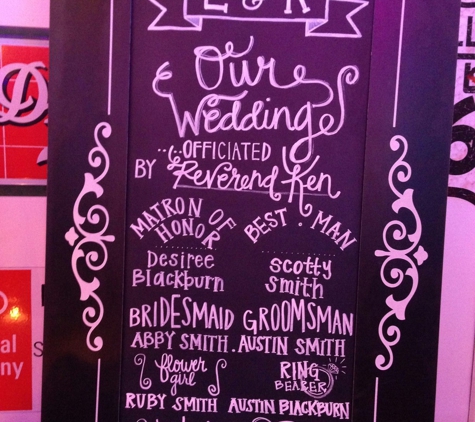 Our
Wedding
OFFICIATED
BY Reverend Ken
MATRON OF HONOR
BEST . MAN
Desiree Blackburn
Scotty Smith
BRIDESMAID GROOMSMAN
ABBY SMITH . AUSTIN SMITH
flower girl
RING BEARER
RUBY SMITH AUSTIN BLACKBURN